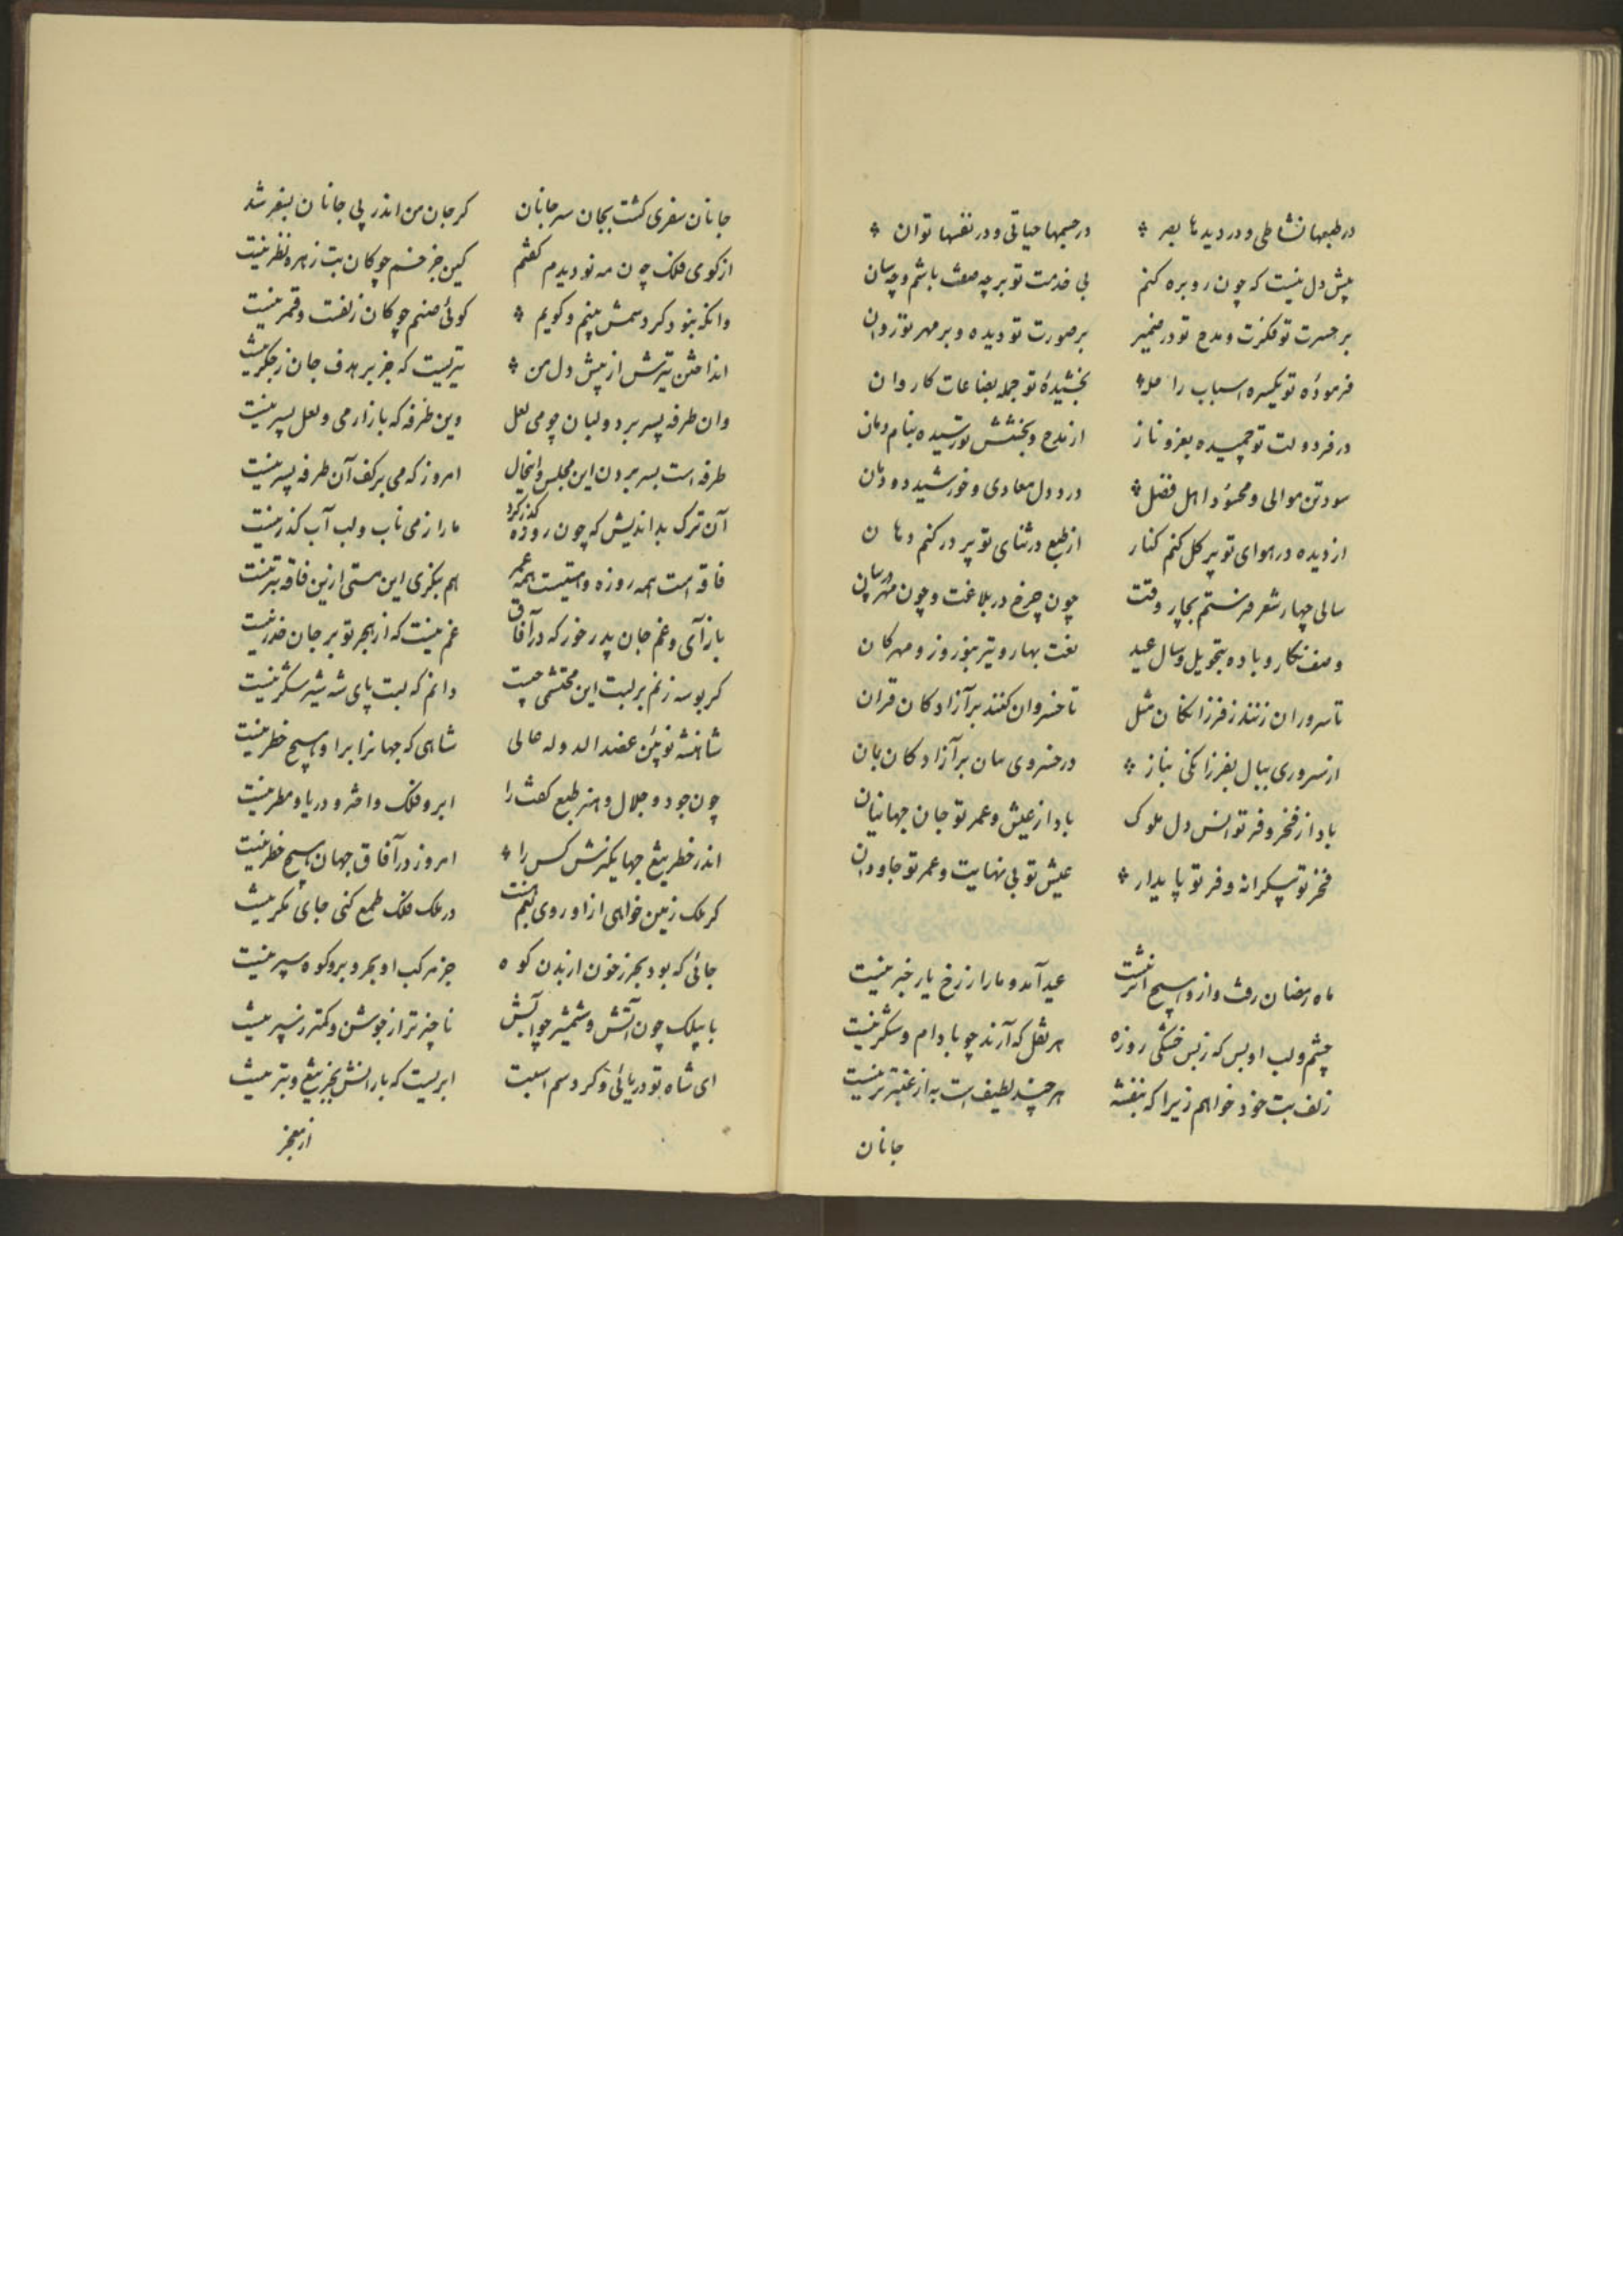 در طبعها نشاطی و در دیدها بصر در جسمها حیاتی و در نفسها توان
پیش دل نیست که چون رو بره کنم بی خدمت تو بر چه صفت باشم و چه سان
بر حسرت تو فکرت و مدح تو در ضمیر بر صورت تو دیده و بر مهر تو روان
فرمودهٔ تو یکسره اسباب را بخشیدهٔ تو جمله بضاعات کاروان
در فر دولت تو چمیده بعز و ناز از مدح و بخشش تو رسیده بنام و نان
سود تن موالی و محسود اهل فضل درد دل معادی و خورشید دودمان
از دیده در هوای تو پر گل کنم کنار از طبع در ثنای تو پر در کنم دهان
سالی چهار شعر فرستم بچار وقت چون چرخ در بلاغت و چون مهر در بیان
وصف نگار و باده بتحویل و سال عید نعت بهار و تیر بنوروز و مهرکان
تا سروران زنند ز فرزانگان مثل تا خسروان کنند بر آزادگان قران
از سروری ببال بفرزانگی بناز در خسروی بمان بر آزادگان بمان
باد از فخر و فر تو انس دل ملوک باد از عیش و عمر تو جان جهانیان
فخر تو بیکرانه و فر تو پایدار عیش تو بی نهایت و عمر تو جاودان
ماه رمضان رفت و ازو هیچ اثر نیست عید آمد و ما را ز رخ یار خبر نیست
چشم و لب او بس که ز بس خشکی روزه هر نقل که آرند چو بادام و شکر نیست
زلف بت خود خواهم زیرا که بنفشه هر چند لطیف است به از عنبر تر نیست
جانان
جانان سفری گشت بجان سر جانان گر جان من اندر پی جانان بسفر شد
از گوی فلک چون مه نو دیدم گفتم کین جز خم چوکان بت زهره نظر نیست
وانگه بنو دگر دسمش بینم و گویم گوئی صنم چوکان زلفست و قمر نیست
انداختن تیرش از پیش دل من تیریست که جز بر هدف جان و جگر نیست
وان طرفه پسر برد و لبان چو می لعل وین طرفه که بازار می و لعل پسر نیست
طرفه است بسر بردن این مجلس و اینحال امروز که می بر کف آن طرفه پسر نیست
آن ترک بداندیش که چون روزه گذر کرد ما را ز می ناب و لب آب گذر نیست
فاقه است همه روزه و مستیست همه عمر هم بگذری این مستی ازین فاقه بتر نیست
باز آی و غم جان پدر خور که در آفاق غم نیست که از هجر تو بر جان پدر نیست
گر بوسه زنم بر لبت این محتشمی چیست دانم که لبت پای شه شیر شکر نیست
شاهنشه نوئین عضد الدوله عالی شاهی که جهانرا برا و هیچ خطر نیست
چون جود و جلال و هنر طبع کفش را ابر و فلک و اختر و دریا و مطر نیست
اندر خطر تیغ جهانگیرش کس را امروز در آفاق جهان هیچ خطر نیست
گر ملک زمین خواهی ازو روی بغم نیست در ملک فلک طمع کنی جای مگر نیست
جائی که بود بحر ز خون از بدن کوه جز مرکب او بحر و بر و کوه سپر نیست
با بیلک چون آتش و شمشیر چو آتش ناچیزتر از جوشن و کمتر ز سپر نیست
ای شاه تو دریائی و گرد سم اسبت ابریست که بارانش بجز تیغ و تبر نیست
از معجز